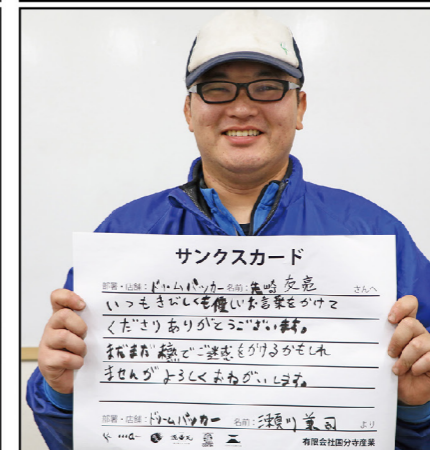 サンクスカード
部署・店舗：ドリームパッカー 名前： 崎 友亮 さんへ
いつもきびしくも優しいお言葉をかけて
くださりありがとうございます。
まだまだ未熟でご迷惑をかけるかもしれ
ませんがよろしくおねがいします。
部署・店舗：ドリームパッカー 名前：瀬川 より
有限会社国分寺産業